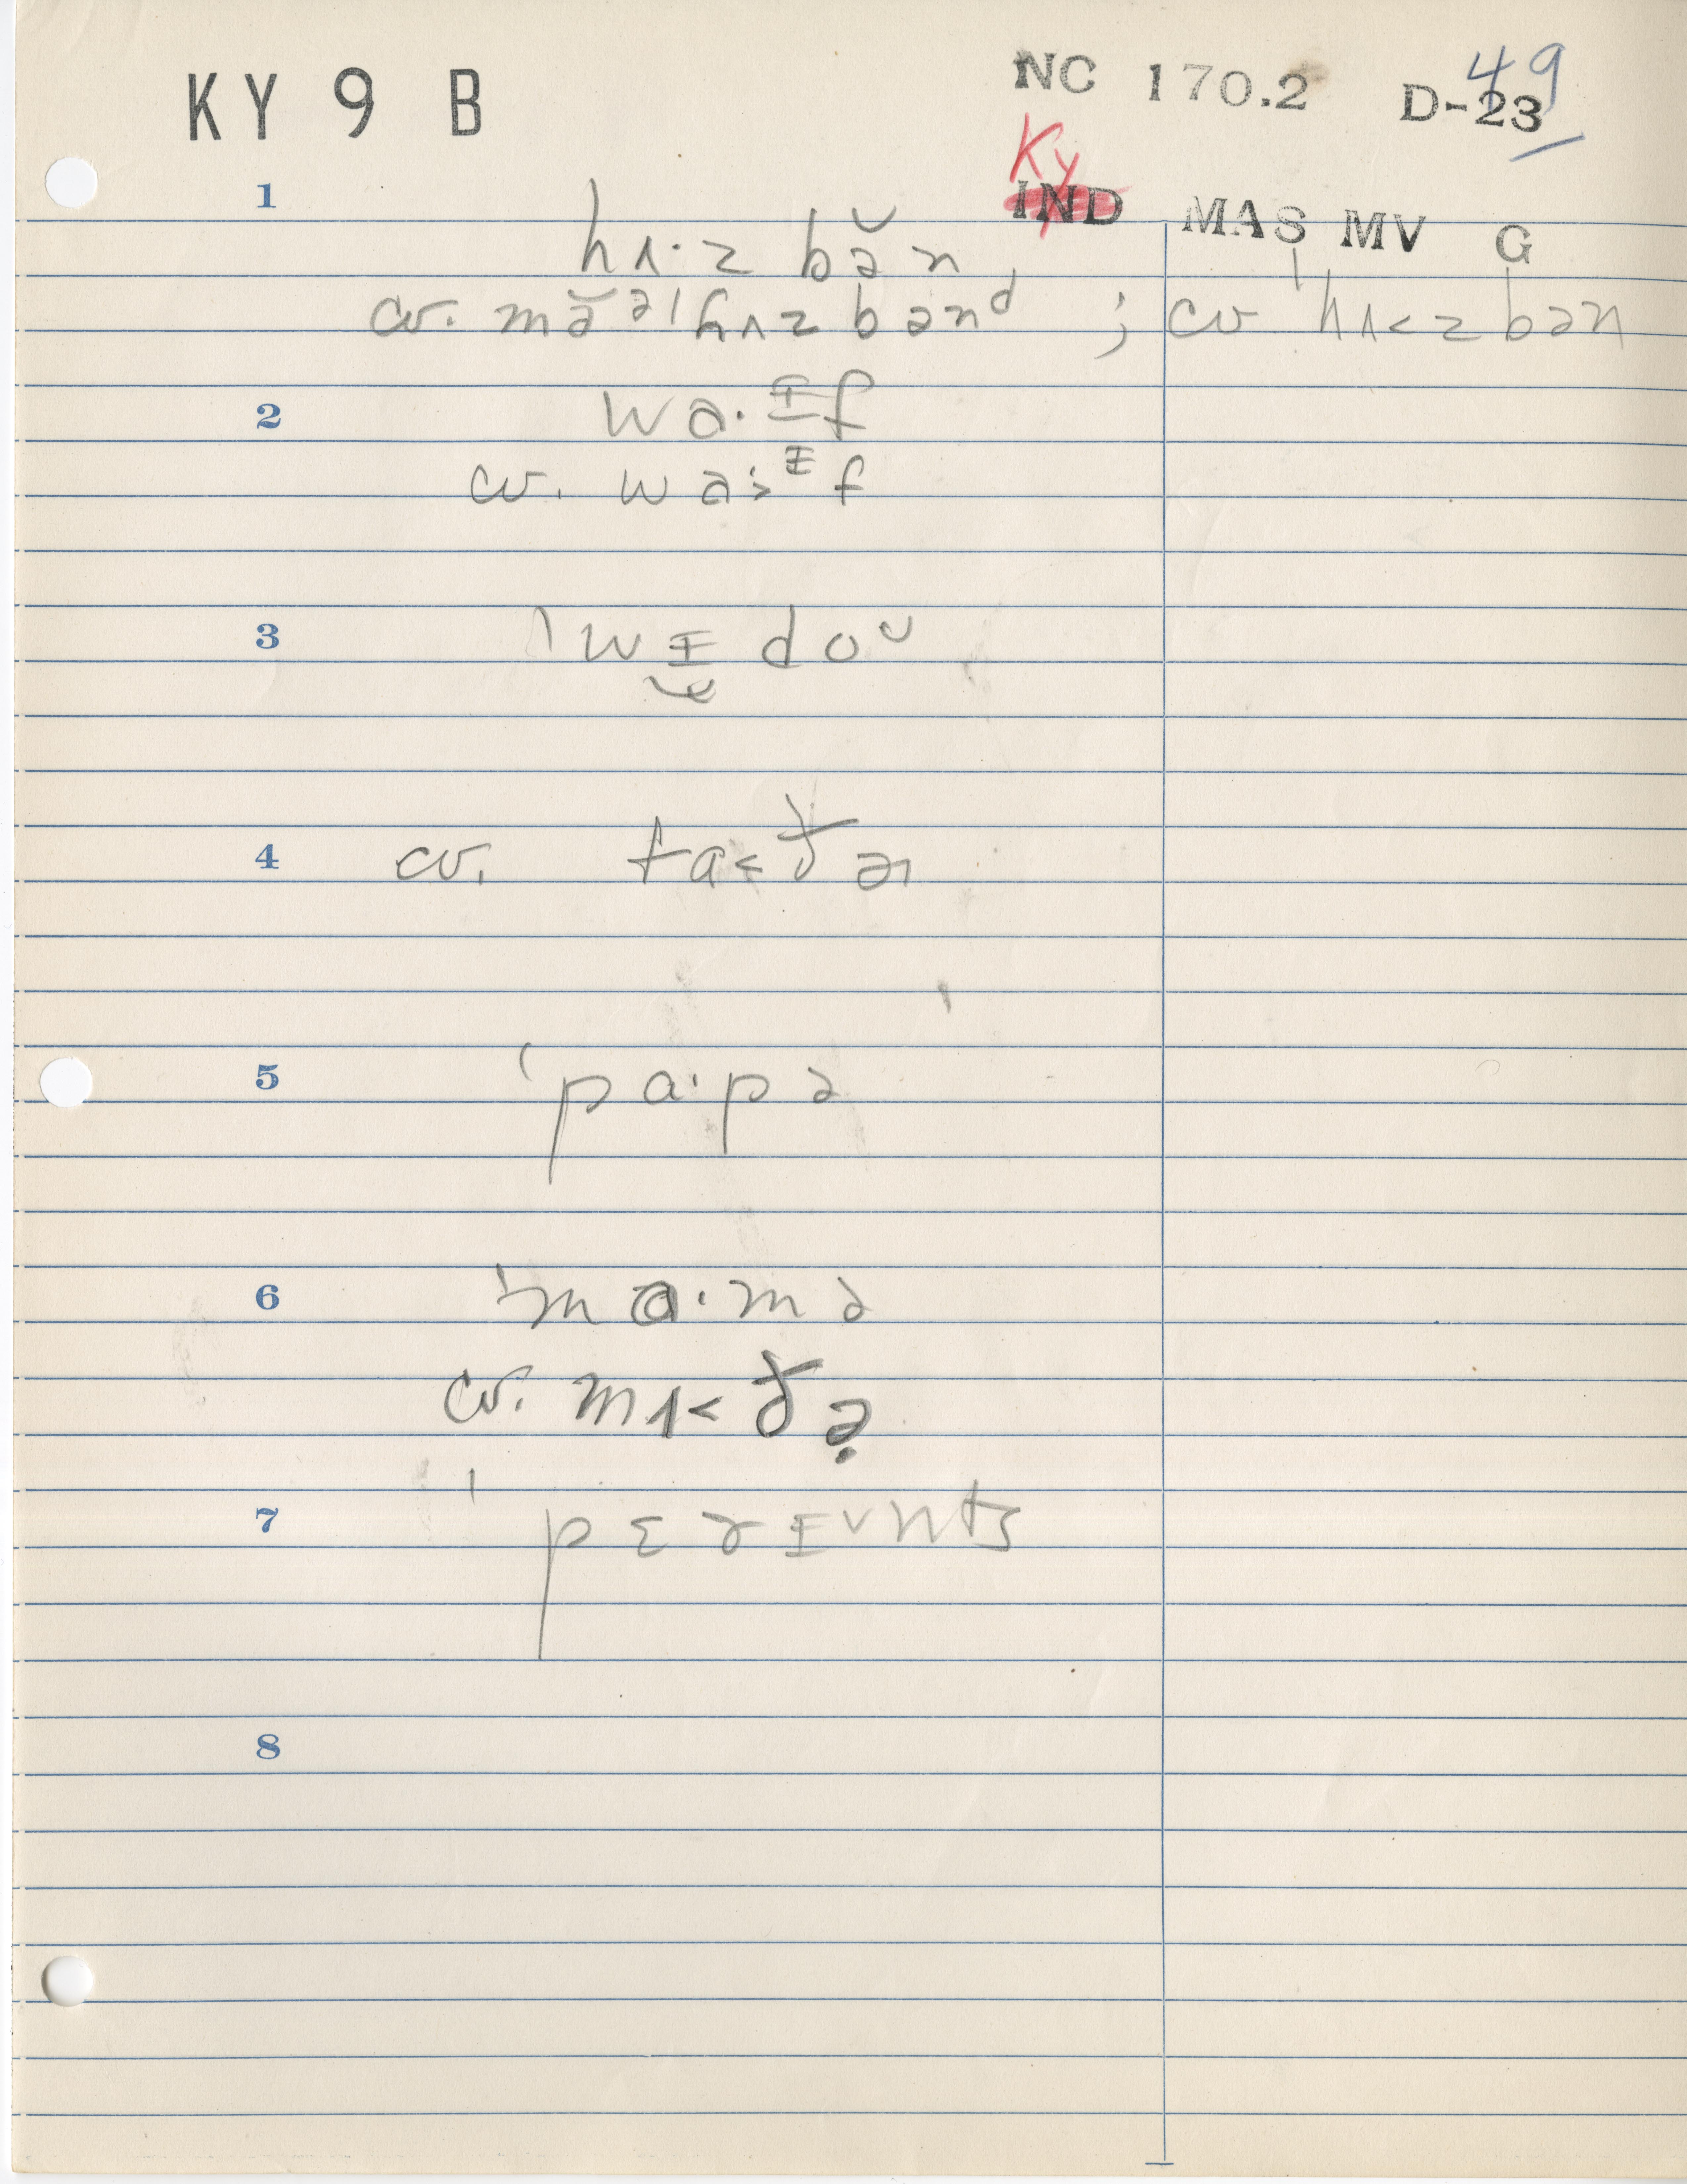 KY 9 B
NC 170.2 D-23 49
Ky
IND MAS MV G
1 hʌ·z bə̆n
cv. mə̆ᵊˈhʌzbənᵈ ; cv ˈhʌ˂zbən
2 wa·ɪf
cv. wa·˃ᶦf
3 ˈwɪdoᴗ
4 cv. fa˂ðə
5 ˈpɑ·pə
6 ˈmɑ·mə
cv. mʌ˂ðə
7 ˈpɛrɪ˅nts
8